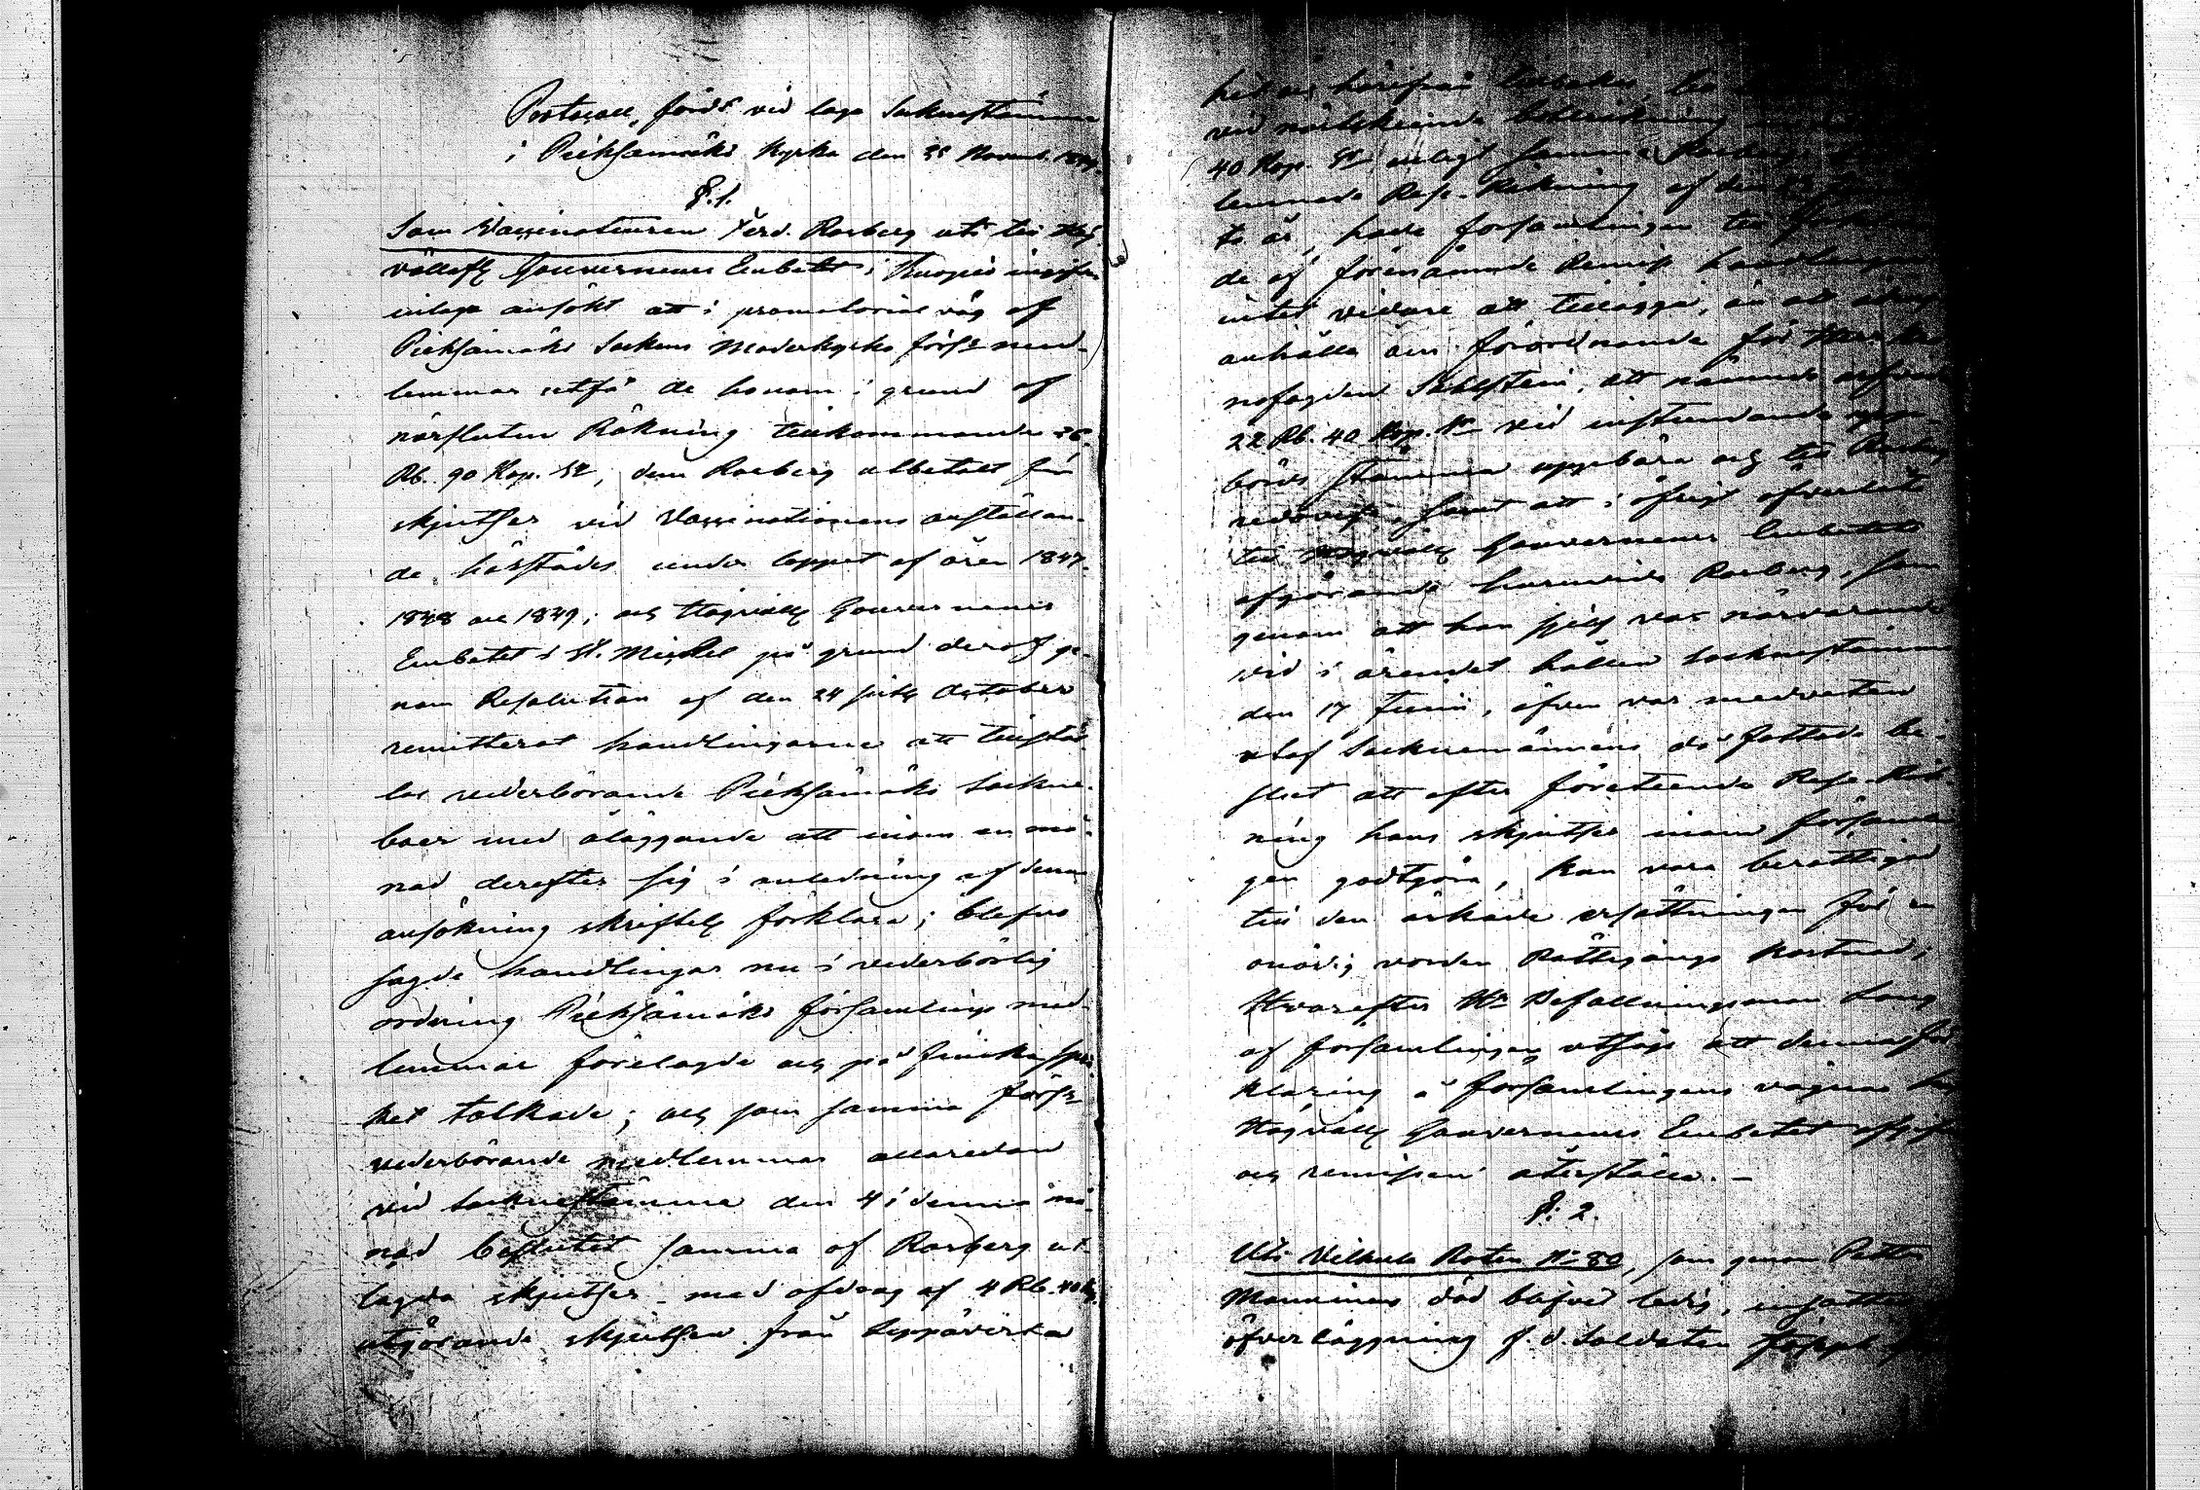 Protocoll, fördt vid laga Sockenstämma
i Pieksämäki Kyrka den 25 Novemb. 1849.
§.1.
Som Vaccinateuren Ferd. Rosberg uti till Hög
vällofl. Gouverneurs Embetet i Kuopio ingifven
inlaga ansökt att i promotorial väg af
Pieksämäki Sockens Moderkyrko förs:s med-
lemmar utfå de honom i grund af
närsluten Räkning tillkommande 26
Rb. 90 Kop. Sr, dem Rosberg utbetalt för
skjutser vid Vaccinationens anställan-
de härstädes under loppet af åren 1847.
1848 och 1849; och Höglofl. Gouverneurs
Embetet i St. Michel på grund deraf ge-
nom Resolution af den 24 sistl. October
remitterat handlingarne att tillstäl-
las vederbörande Pieksämäki Sockne-
boer med åläggande att inom en må-
nad derefter sig i anledning af denna
ansökning skriftel. förklara; blefvo
sagde handlingar nu i vederbörlig
ordning Pieksämäki församlings med-
lemmar förelagde och på finska språ-
ket tolkade; och som samma förs:s
vederbörande medlemmar allaredan
vid Sockenstämma den 4 i denna må-
nad beslutet samma af Rosberg ut-
lagda skjutser med afdrag af 4 Rb. 40 k.
utgörande skjutsen från Leppävirta
hit och härifrån tillbaka,
vid
40 Kop. Sr enligt samma Rosbergs
lemnade Rese-Räkning af den
te år, hade församlingen till
de af förenämnde Remiss handlingar
intet vidare att tillägga, än att
anhålla om förordnande för Herr Kro-
nofogden Sahlstein, att nämnde
22 Rb. 40 Kop. Sr vid instundande upp-
börds stämma uppbära och till Rosberg
redovisa, samt att i öfrigt öfverlåta
till Höglofl. Gouverneurs Embetets
afgörande huruvida Rosberg, som
genom att han sjelf var närvarande
vid i ärendet hållen Sockenstämma
den 17 Junii, äfven var medveten
utaf Sockenmännens då fattade be-
slut att efter företeende Rese-Räk-
ning hans skjutser inom församlin-
gen godtgöra, kan vara berättigad
till den äskade ersättningen för en
onödig vorden Rättegångs kostnad;
Hvarefter Hr Befallningsman Lang
af församlingen utsågs att denna för-
klaring å församlingens vägnar till
Höglofl. Gouverneurs Embetet afgifva
och remissen återställa. –
§: 2.
Uti Vilkula Roten No 80, som genom Petter
Manninens död blifvit ledig,
öfverläggning f. d. Soldaten Joseph